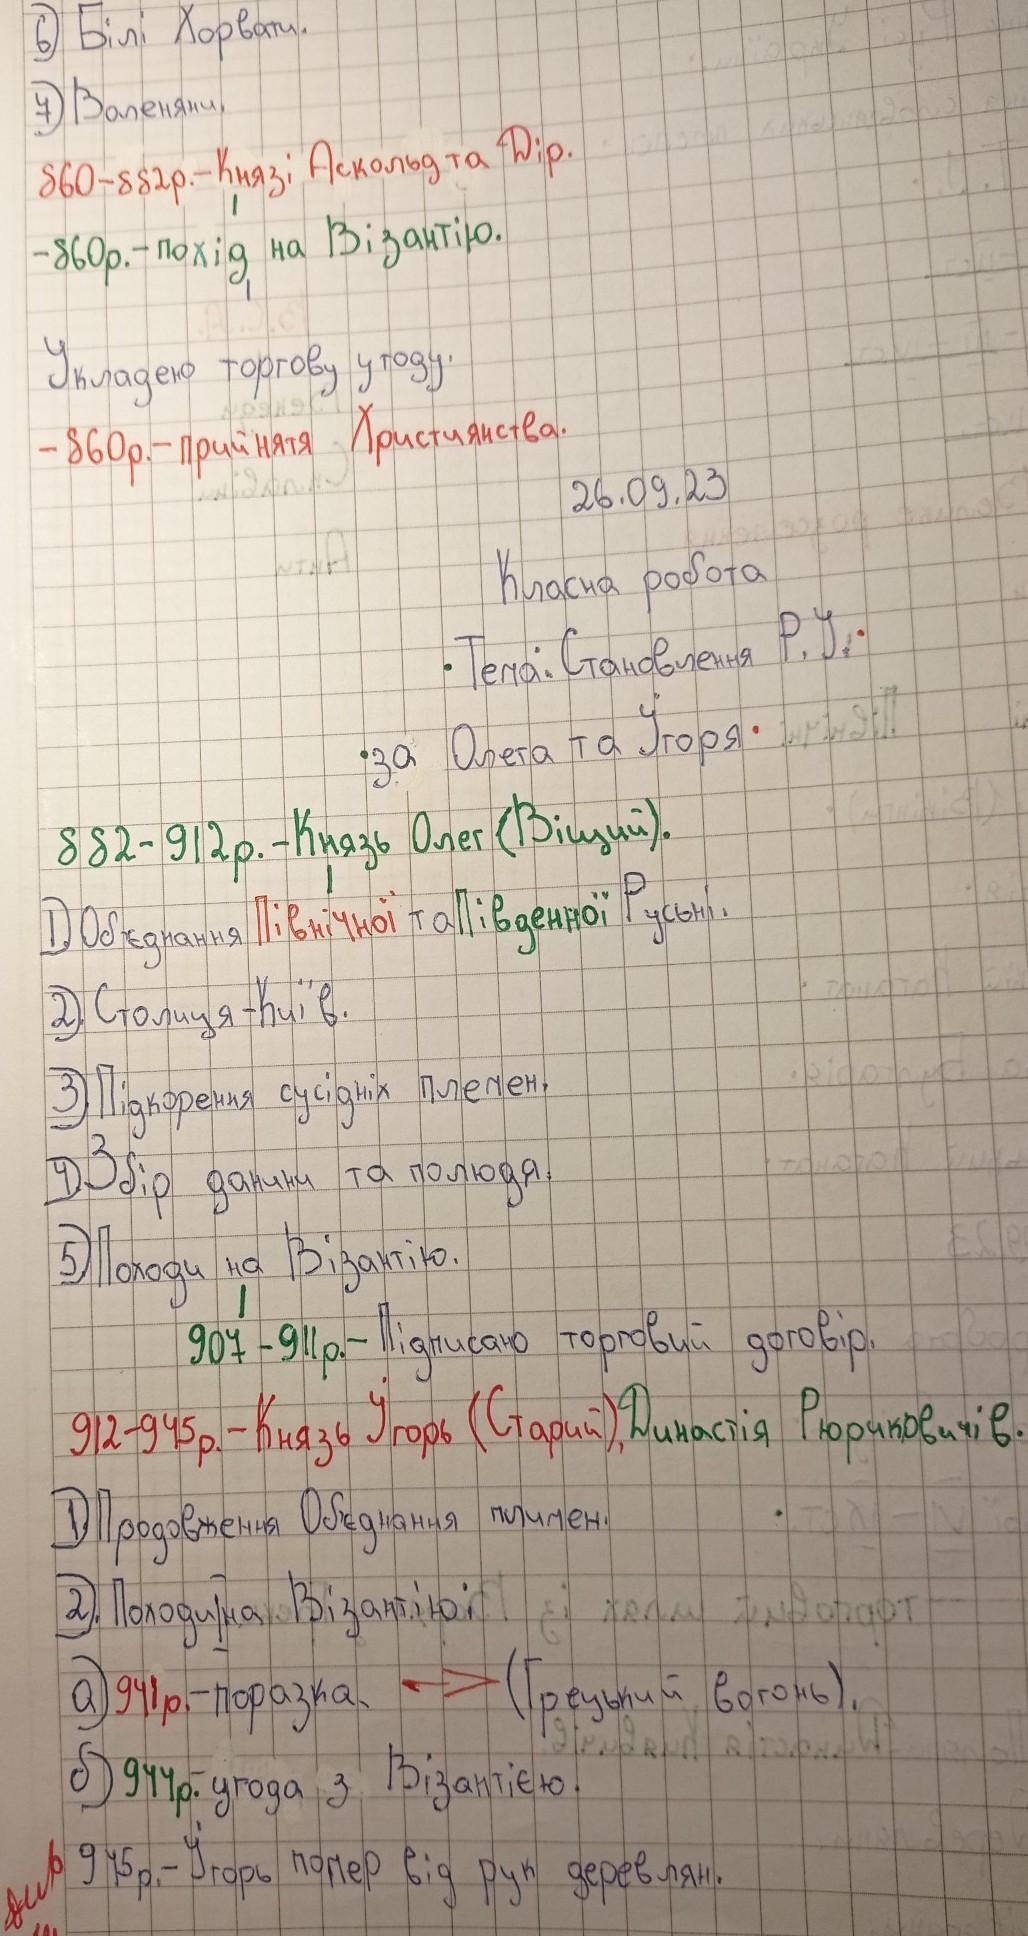 6) Білі Хорвати.
7) Воленяни.
860-882р.-Князі Аскольд та Дір.
-860р.-похід на Візантію.
Укладено торгову угоду.
-860р.-прийнятя Християнства.
26.09.23
Класна робота
Тема: Становлення Р.У.
за Олега та Ігоря
882-912р.-Князь Олег (Віщий).
1) Обєднання Північної та Південної Русьні.
2) Столиця-Київ.
3) Підкорення сусідніх племен.
4) Збір данини та полюдя.
5) Походи на Візантію.
907-911р.-Підписано торговий договір.
912-945р.-Князь Ігорь (Старий), Династія Рюриковичів.
1) Продовження Обєднання плимен.
2). Походи на Візантію:
а) 941р.-поразка. (Грецький вогонь).
б) 944р.-угода з Візантією.
945р.-Ігорь помер від рук деревлян.